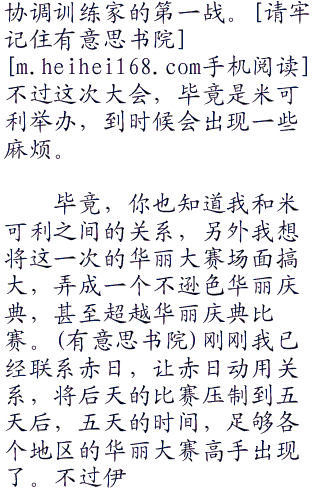 协调训练家的第一战。[请牢
记住有意思书院]
[m.heihei168.com手机阅读]
不过这次大会，毕竟是米可
利举办，到时候会出现一些
麻烦。
毕竟，你也知道我和米
可利之间的关系，另外我想
将这一次的华丽大赛场面搞
大，弄成一个不逊色华丽庆
典，甚至超越华丽庆典比
赛。(有意思书院)刚刚我已
经联系赤日，让赤日动用关
系，将后天的比赛压制到五
天后，五天的时间，足够各
个地区的华丽大赛高手出现
了。不过伊